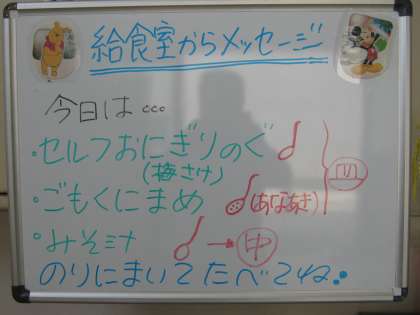 給食室からメッセージ
今日は…
・セルフおにぎりのぐ
(梅 さけ)
・ごもくにまめ (あなあき)
・みそ汁 → 中
のりにまいてたべてね